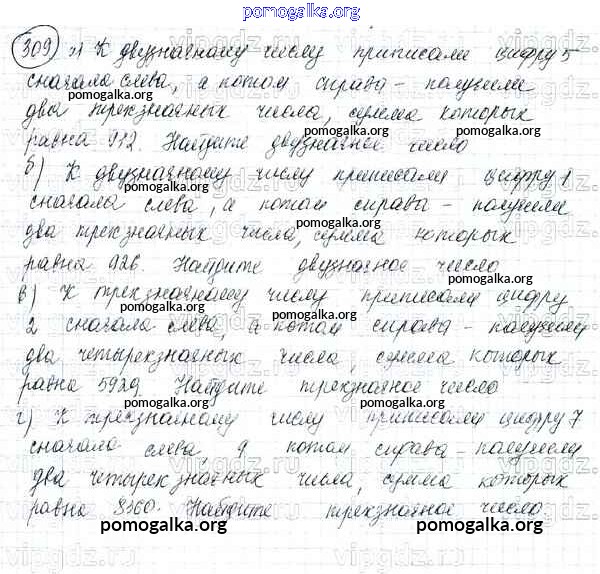 pomogalka.org
309 а) К двузначному числу приписали цифру 5
сначала слева, а потом справа - получили
два трехзначных числа, сумма которых
равна 912. Найдите двузначное число
б) К двузначному числу приписали цифру 1
сначала слева, а потом справа - получили
два трехзначных числа, сумма которых
равна 926. Найдите двузначное число
в) К трехзначному числу приписали цифру
2 сначала слева, а потом справа - получили
два четырехзначных числа, сумма которых
равна 5929. Найдите трехзначное число
г) К трехзначному числу приписали цифру 7
сначала слева, а потом справа - получили
два четырехзначных числа, сумма которых
равна 8360. Найдите трехзначное число.
pomogalka.org pomogalka.org